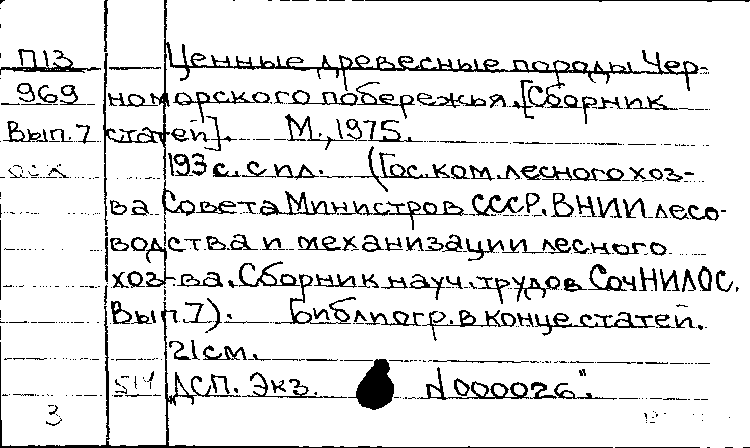 П13 Ценные древесные породы Чер-
969 номорского побережья. [Сборник
Вып. 7 статей]. М., 1975.
193 с. с ил. (Гос. ком. лесного хоз-
ва Совета Министров СССР. ВНИИ лесо-
водства и механизации лесного
хоз-ва. Сборник науч. трудов СочНИЛОС.
Вып. 7). Библиогр. в конце статей.
21 см.
514 "ДСП. Экз. N 000026".
3